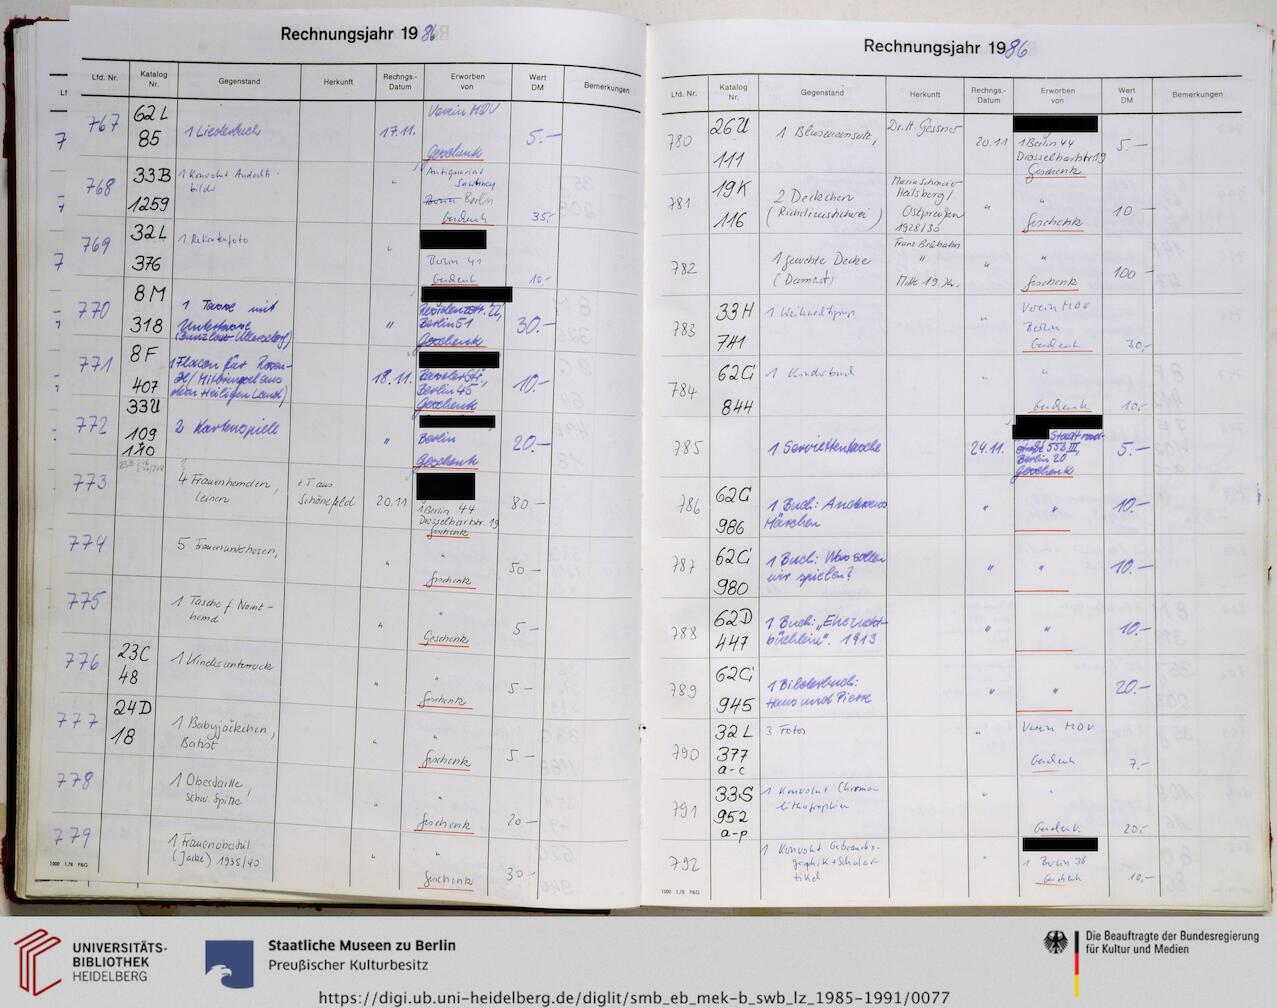 Rechnungsjahr 1986
Lfd. Nr.
Katalog Nr.
Gegenstand
Herkunft
Rechngs.- Datum
Erworben von
Wert DM
Bemerkungen
767
62 L
85
1 Liederbuch
17.11.
Verein MDV
Geschenk
5.-
768
33B
1259
1 Konvolut Andachts-
bilder
"
Antiquariat
Berlin
Geschenk
35.-
769
32L
376
1 Rekrutenfoto
"
Berlin 41
Geschenk
10.-
770
8M
318
1 Tasse mit
Untertasse
"
Berlin 51
Geschenk
30.-
771
8F
407
1 Flacon für Rosen-
öl/Mitbringsel aus
dem Heiligen Land)
18.11.
Berlin 45
Geschenk
10.-
772
33U
109
110
2 Kartenspiele
"
Berlin
Geschenk
20.-
773
4 Frauenhemden,
Leinen
Schönefeld
20.11
1 Berlin 44
Drosselbartstr. 19
Geschenk
80.-
774
5 Frauenunterhosen,
"
"
Geschenk
50-
775
1 Tasche f. Nacht-
hemd
"
"
Geschenk
5-
776
23C
48
1 Kinderunterrock
"
"
Geschenk
5.-
777
24D
18
1 Babyjäckchen,
Batist
"
"
Geschenk
5.-
778
1 Obertaille,
schw. Spitze
"
"
Geschenk
20-
779
(Jacke) 1935/40
"
"
Geschenk
30-
1000 1.78 P&G
Rechnungsjahr 1986
Lfd. Nr.
Katalog Nr.
Gegenstand
Herkunft
Rechngs.- Datum
Erworben von
Wert DM
Bemerkungen
780
26U
111
1 Bluseneinsatz,
Dr. H. Gessner
20.11
1 Berlin 44
Drosselbartstr. 19
Geschenk
5.-
781
19K
116
2 Deckchen
(Richelieustickerei)
Heilsberg/
Ostpreußen
1928/30
"
Geschenk
10.-
782
1 gewebte Decke
(Damast)
"
Mitte 19. Jh.
"
"
Geschenk
100-
783
33H
741
"
Verein MDV
Berlin
Geschenk
30.-
784
62G
844
1 Kinderbuch
"
"
Geschenk
10.-
785
1 Serviettentasche
24.11.
Berlin 20
Geschenk
5.-
786
62G
986
1 Buch: Andersens
Märchen
"
"
10.-
787
62G
980
1 Buch: Was sollen
wir spielen?
"
"
10.-
788
62D
447
1 Buch: „Eherecht-
büchlein". 1913
"
"
10.-
789
62G
945
1 Bilderbuch:
Hans und Pierre
"
"
20.-
790
32 L
377
a-c
3 Fotos
"
Verein MDV
Geschenk
7.-
791
33S
952
a-p
1 Konvolut Chromo-
lithographien
"
"
Geschenk
20.-
792
1 Konvolut Gebrauchs-
graphik + Schular-
tikel
"
1 Berlin 38
Geschenk
10.-
1000 1.78 P&G
UNIVERSITÄTS-
BIBLIOTHEK
HEIDELBERG
Staatliche Museen zu Berlin
Preußischer Kulturbesitz
Die Beauftragte der Bundesregierung
für Kultur und Medien
https://digi.ub.uni-heidelberg.de/diglit/smb_eb_mek-b_swb_lz_1985-1991/0077